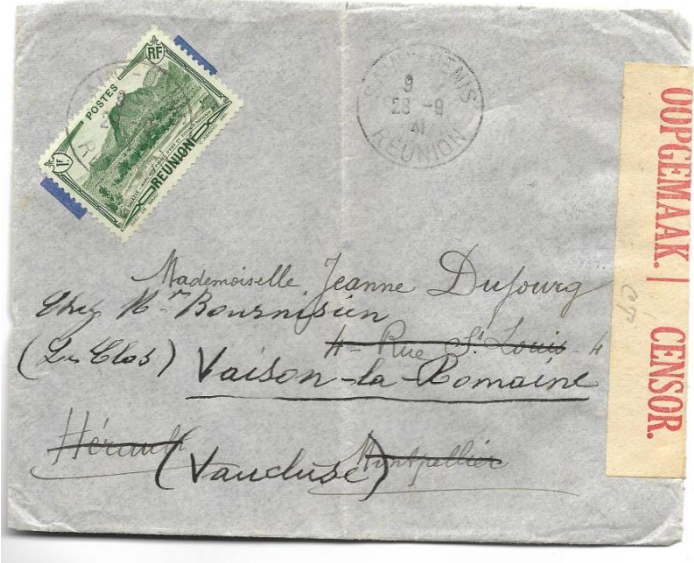 RF
POSTES
1F
RÉUNION
SAINT-DENIS
9
28 -9
41
RÉUNION
OOPGEMAAK. | CENSOR.
Mademoiselle Jeanne Dufourg
Chez Mr Bournisien
4 - Rue St Louis - 4
(Le Clos) Vaison-la-Romaine
Hérault (Vaucluse) Montpellier